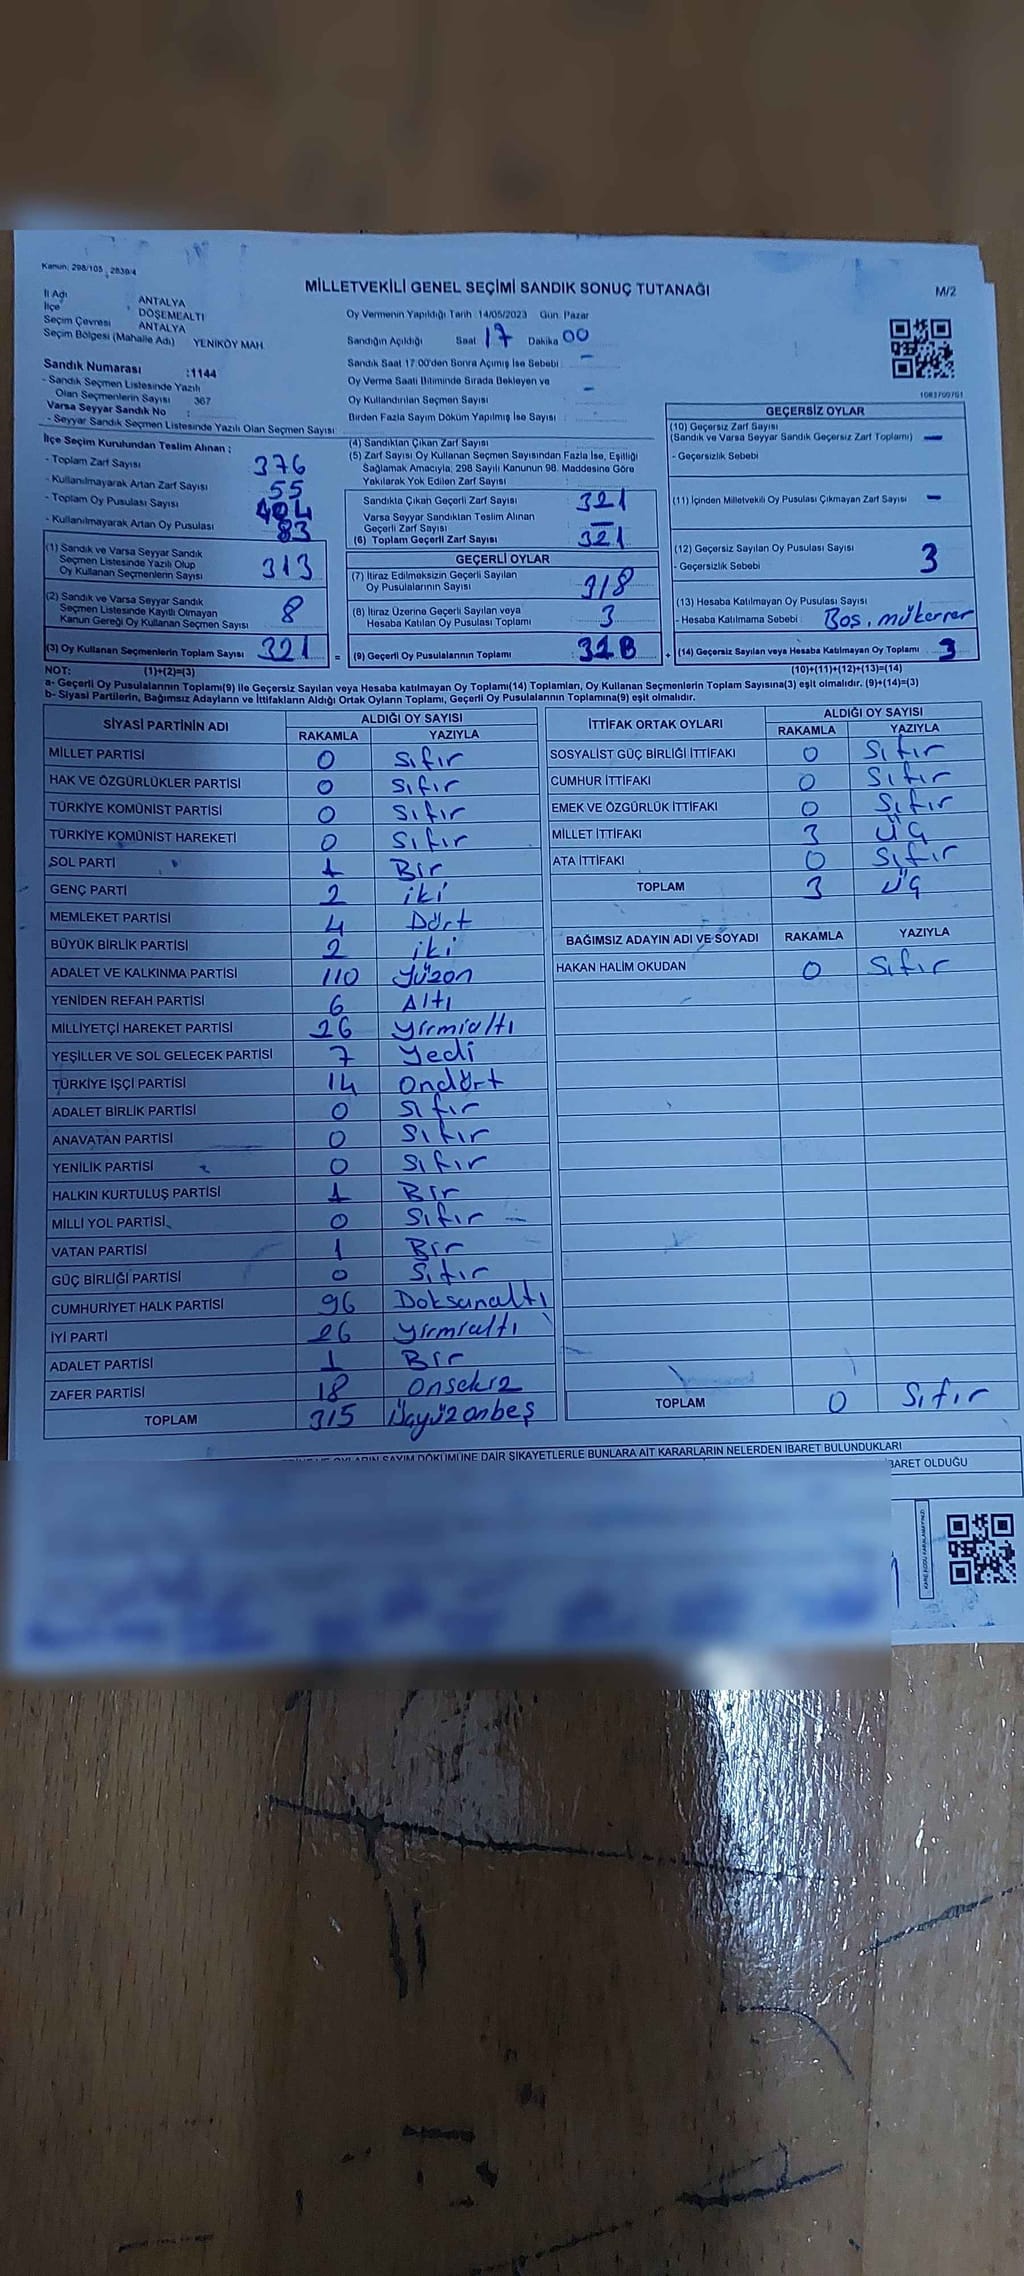 Kanun: 298/105, 2839/4
MİLLETVEKİLİ GENEL SEÇİMİ SANDIK SONUÇ TUTANAĞI
M/2
İl Adı ANTALYA
İlçe DÖŞEMEALTI
Seçim Çevresi ANTALYA
Seçim Bölgesi (Mahalle Adı) YENİKÖY MAH.
Oy Vermenin Yapıldığı Tarih : 14/05/2023 Gün: Pazar
Sandığın Açıldığı Saat 17 Dakika 00
Sandık Saat 17:00'den Sonra Açılmış İse Sebebi : -
Oy Verme Saati Bitiminde Sırada Bekleyen ve
Oy Kullandırılan Seçmen Sayısı -
Birden Fazla Sayım Döküm Yapılmış İse Sayısı :
Sandık Numarası :1144
- Sandık Seçmen Listesinde Yazılı
Olan Seçmenlerin Sayısı : 367
Varsa Seyyar Sandık No :
- Seyyar Sandık Seçmen Listesinde Yazılı Olan Seçmen Sayısı:
İlçe Seçim Kurulundan Teslim Alınan :
- Toplam Zarf Sayısı 376
- Kullanılmayarak Artan Zarf Sayısı 55
- Toplam Oy Pusulası Sayısı 404
- Kullanılmayarak Artan Oy Pusulası 83
(1) Sandık ve Varsa Seyyar Sandık
Seçmen Listesinde Yazılı Olup
Oy Kullanan Seçmenlerin Sayısı 313
(2) Sandık ve Varsa Seyyar Sandık
Seçmen Listesinde Kayıtlı Olmayan
Kanun Gereği Oy Kullanan Seçmen Sayısı 8
(3) Oy Kullanan Seçmenlerin Toplam Sayısı 321 =
(4) Sandıktan Çıkan Zarf Sayısı :
(5) Zarf Sayısı Oy Kullanan Seçmen Sayısından Fazla İse, Eşitliği
Sağlamak Amacıyla; 298 Sayılı Kanunun 98. Maddesine Göre
Yakılarak Yok Edilen Zarf Sayısı :
Sandıkta Çıkan Geçerli Zarf Sayısı : 321
Varsa Seyyar Sandıktan Teslim Alınan
Geçerli Zarf Sayısı : -
(6) Toplam Geçerli Zarf Sayısı : 321
GEÇERLİ OYLAR
(7) İtiraz Edilmeksizin Geçerli Sayılan
Oy Pusulalarının Sayısı 318
(8) İtiraz Üzerine Geçerli Sayılan veya
Hesaba Katılan Oy Pusulası Toplamı 3
(9) Geçerli Oy Pusulalarının Toplamı 318 +
1083700761
GEÇERSİZ OYLAR
(10) Geçersiz Zarf Sayısı
(Sandık ve Varsa Seyyar Sandık Geçersiz Zarf Toplamı) -
- Geçersizlik Sebebi
(11) İçinden Milletvekili Oy Pusulası Çıkmayan Zarf Sayısı -
(12) Geçersiz Sayılan Oy Pusulası Sayısı 3
- Geçersizlik Sebebi
(13) Hesaba Katılmayan Oy Pusulası Sayısı
- Hesaba Katılmama Sebebi : Boş, mükerrer
(14) Geçersiz Sayılan veya Hesaba Katılmayan Oy Toplamı 3
NOT: (1)+(2)=(3) (10)+(11)+(12)+(13)=(14)
a- Geçerli Oy Pusulalarının Toplamı(9) ile Geçersiz Sayılan veya Hesaba katılmayan Oy Toplamı(14) Toplamları, Oy Kullanan Seçmenlerin Toplam Sayısına(3) eşit olmalıdır. (9)+(14)=(3)
b- Siyasi Partilerin, Bağımsız Adayların ve İttifakların Aldığı Ortak Oyların Toplamı, Geçerli Oy Pusulalarının Toplamına(9) eşit olmalıdır.
SİYASİ PARTİNİN ADI ALDIĞI OY SAYISI
RAKAMLA YAZIYLA
MİLLET PARTİSİ 0 Sıfır
HAK VE ÖZGÜRLÜKLER PARTİSİ 0 Sıfır
TÜRKİYE KOMÜNİST PARTİSİ 0 Sıfır
TÜRKİYE KOMÜNİST HAREKETİ 0 Sıfır
SOL PARTİ 1 Bir
GENÇ PARTİ 2 iki
MEMLEKET PARTİSİ 4 Dört
BÜYÜK BİRLİK PARTİSİ 2 iki
ADALET VE KALKINMA PARTİSİ 110 Yüzon
YENİDEN REFAH PARTİSİ 6 Altı
MİLLİYETÇİ HAREKET PARTİSİ 26 yirmialtı
YEŞİLLER VE SOL GELECEK PARTİSİ 7 Yedi
TÜRKİYE İŞÇİ PARTİSİ 14 Ondört
ADALET BİRLİK PARTİSİ 0 Sıfır
ANAVATAN PARTİSİ 0 Sıfır
YENİLİK PARTİSİ 0 Sıfır
HALKIN KURTULUŞ PARTİSİ 1 Bir
MİLLİ YOL PARTİSİ 0 Sıfır
VATAN PARTİSİ 1 Bir
GÜÇ BİRLİĞİ PARTİSİ 0 Sıfır
CUMHURİYET HALK PARTİSİ 96 Doksanaltı
İYİ PARTİ 26 yirmialtı
ADALET PARTİSİ 1 Bir
ZAFER PARTİSİ 18 Onsekiz
TOPLAM 315 Üçyüzonbeş
İTTİFAK ORTAK OYLARI ALDIĞI OY SAYISI
RAKAMLA YAZIYLA
SOSYALİST GÜÇ BİRLİĞİ İTTİFAKI 0 Sıfır
CUMHUR İTTİFAKI 0 Sıfır
EMEK VE ÖZGÜRLÜK İTTİFAKI 0 Sıfır
MİLLET İTTİFAKI 3 Üç
ATA İTTİFAKI 0 Sıfır
TOPLAM 3 Üç
BAĞIMSIZ ADAYIN ADI VE SOYADI RAKAMLA YAZIYLA
HAKAN HALİM OKUDAN 0 Sıfır
TOPLAM 0 Sıfır
OYLARIN SAYIM DÖKÜMÜNE DAİR ŞİKAYETLERLE BUNLARA AİT KARARLARIN NELERDEN İBARET BULUNDUKLARI
İBARET OLDUĞU